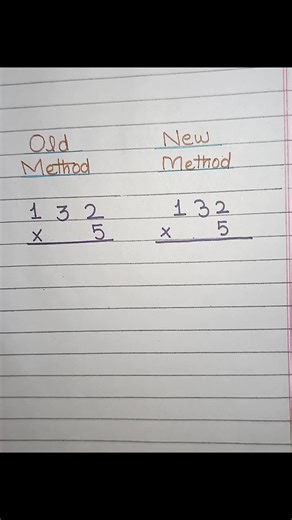 Old Method
New Method
1 3 2
x 5
1 3 2
x 5